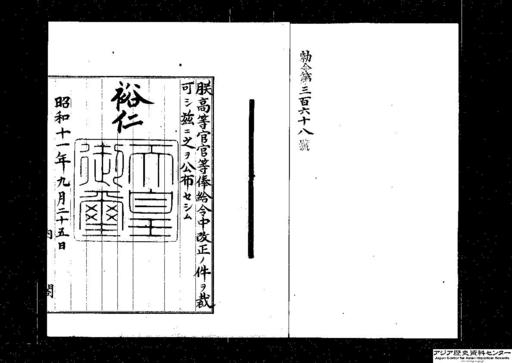 勅令第三百六十八號
朕高等官官等俸給令中改正ノ件ヲ裁
可シ茲ニ之ヲ公布セシム
裕仁
天皇
御璽
昭和十一年九月二十五日
内閣
アジア歴史資料センター
Japan Center for Asian Historical Records